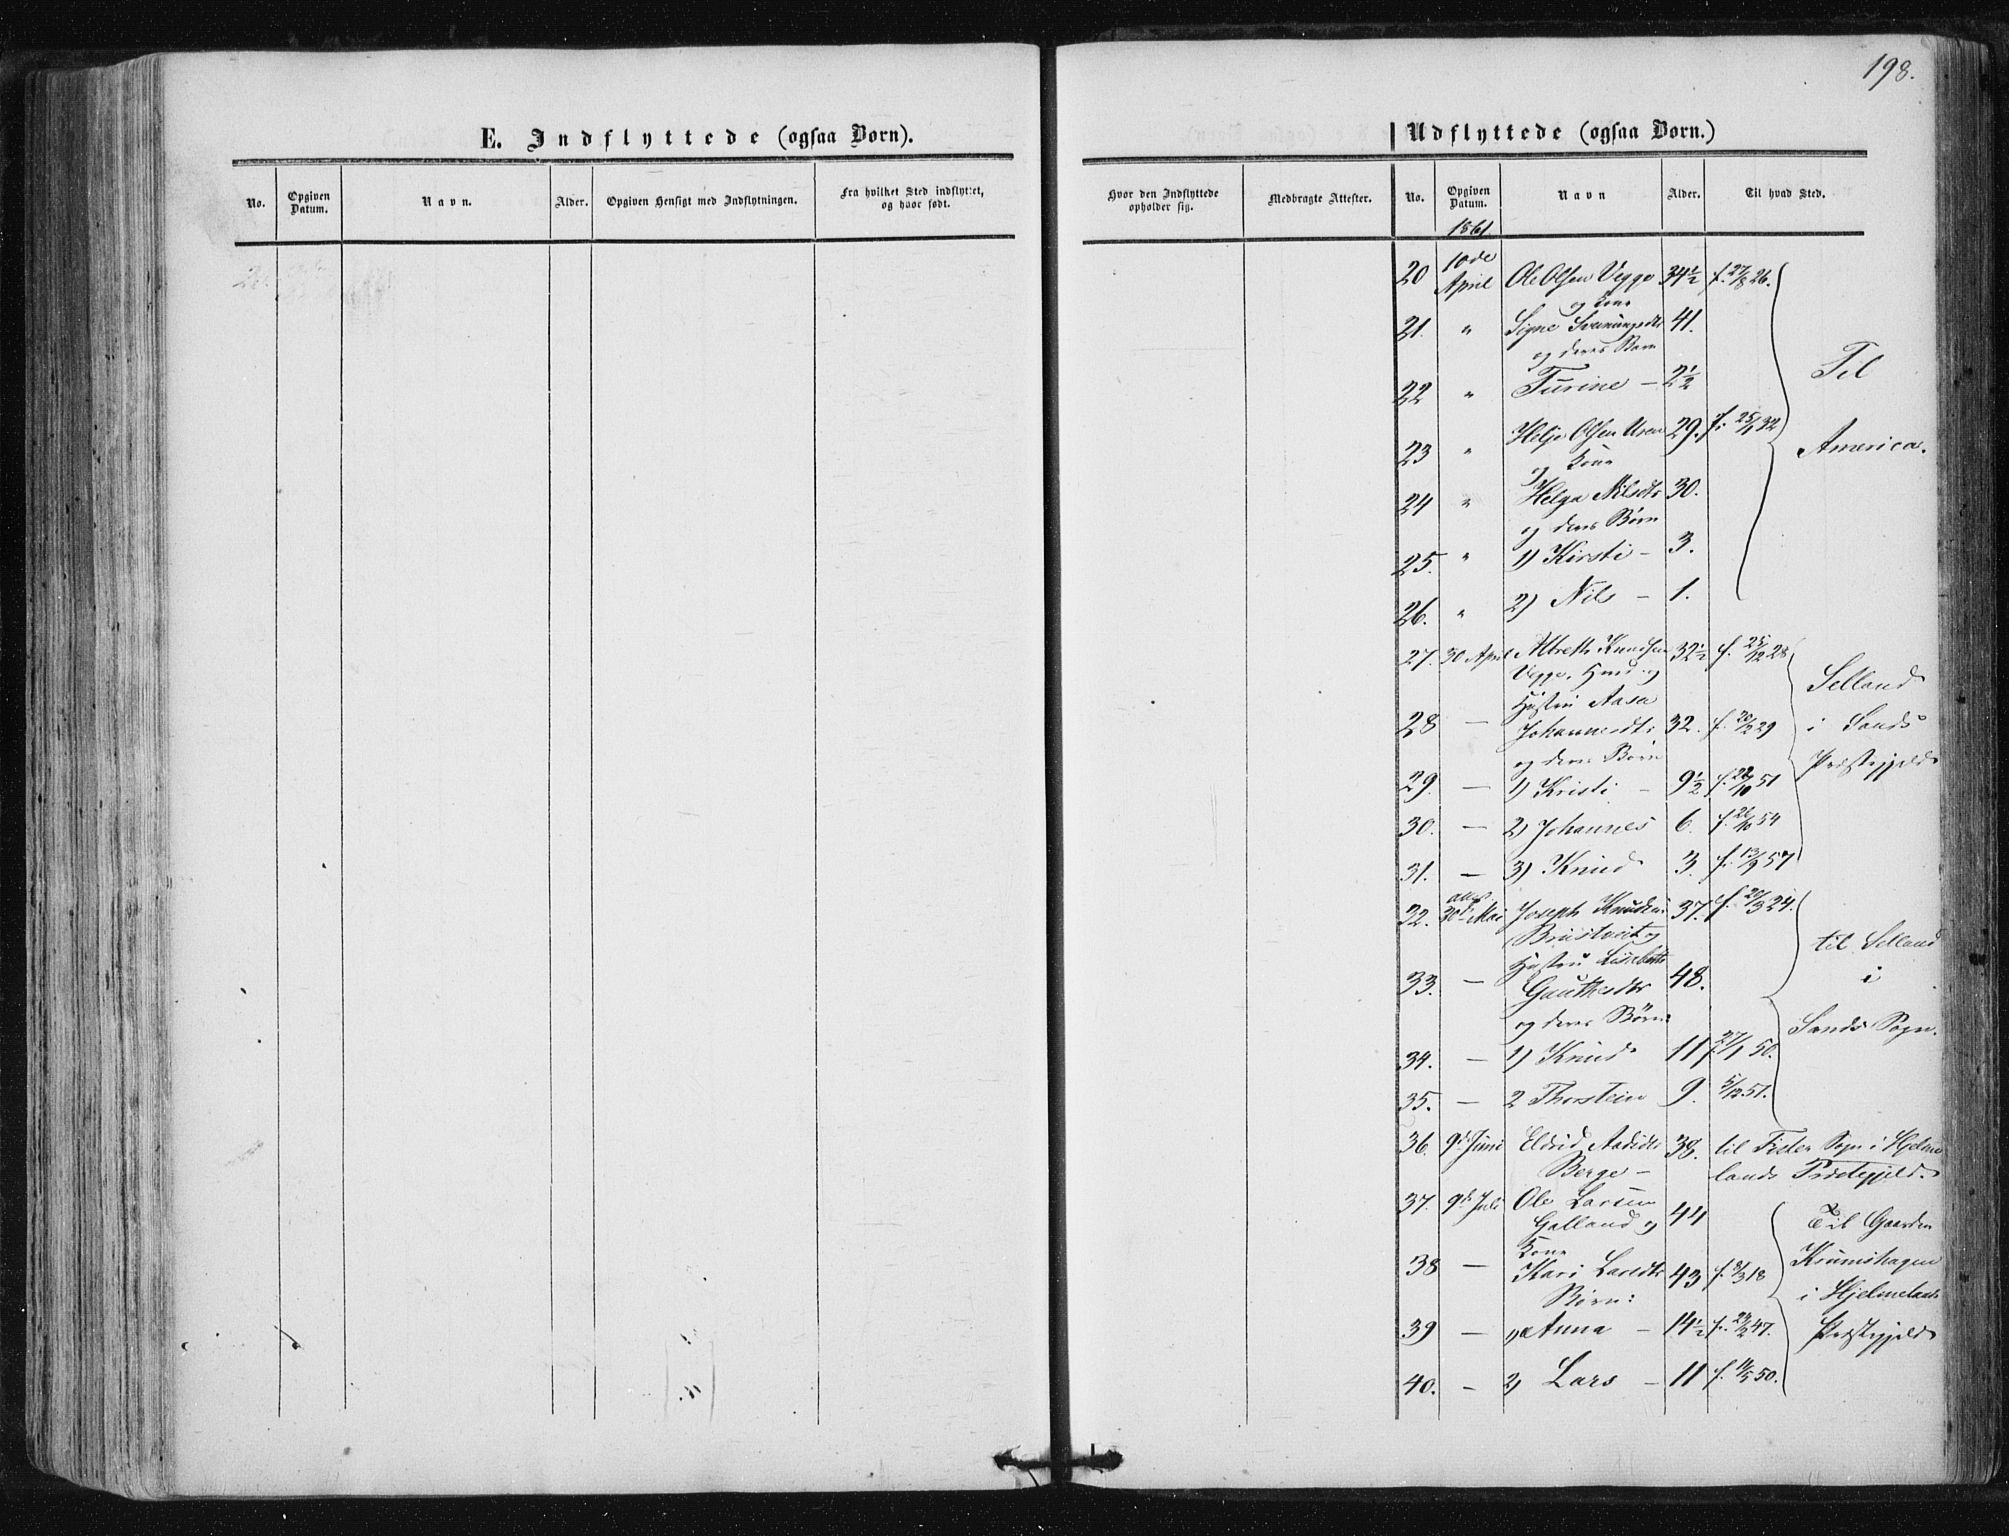 198.
E. Indflyttede (ogsaa Børn).
Udflyttede (ogsaa Børn.)
No. Opgiven Datum. Navn. Alder. Opgiven Hensigt med Indflytningen. Fra hvilket Sted indflyttet, og hvor født.
Hvor den Indflyttede opholder sig. Medbragte Attester. No. Opgiven Datum. Navn Alder. Til hvad Sted.
1861.
20 10de April Ole Olsen Vegge 34½ f. 27/8 26.
og Kone
21. " Signe Sveinungsdtr 41.
og deres Barn
22 " Turine – 2½
Til
America.
23 " Helje Olsen Uren 29. f. 25/1 32
og Kone
24 " Helga Nilsdtr 30.
og deres Børn
25. " 1) Kirsti – 3.
26. " 2) Nils – 1.
27. 30 April Albreth Knudsen 32½ f. 25/12 28
Vegge, Huusm. og
Hustru Aasa
28 — Johannesdtr 32. f. 20/2 29
og deres Børn
29. — 1) Kristi – 9½ f. 22/10 51
30. — 2) Johannes 6. f. 26/10 54
31. — 3) Knud 3. f. 13/9 57
Selland
i Sands
Præstegjeld
32. 30d Mai Joseph Knudsen 37. f. 20/3 24.
Brustveit og
Hustru Lisebeth
33. — Gauthesdtr 48.
og deres Børn:
34. — 1) Knud 11 27/1 50.
35. — 2 Thorstein 9. 5/12 51.
til Selland
i
Sands Sogn.
36. 9d Juni Eldrid Aadsdtr 38. til Fister Sogn i Hjelme
Berge – lands Præstegjeld.
37. 9d Juli Ole Larsen
Galland og 44
Kone
38 — Kari Larsdtr 43 f. 8/3 18
Børn:
39 — 1) Anna – 14½ f. 24/2 47.
40. — 2) Lars – 11 f. 11/5 50.
Til Gaarden
Krumshagen
i Hjelmelands
Præstegjeld